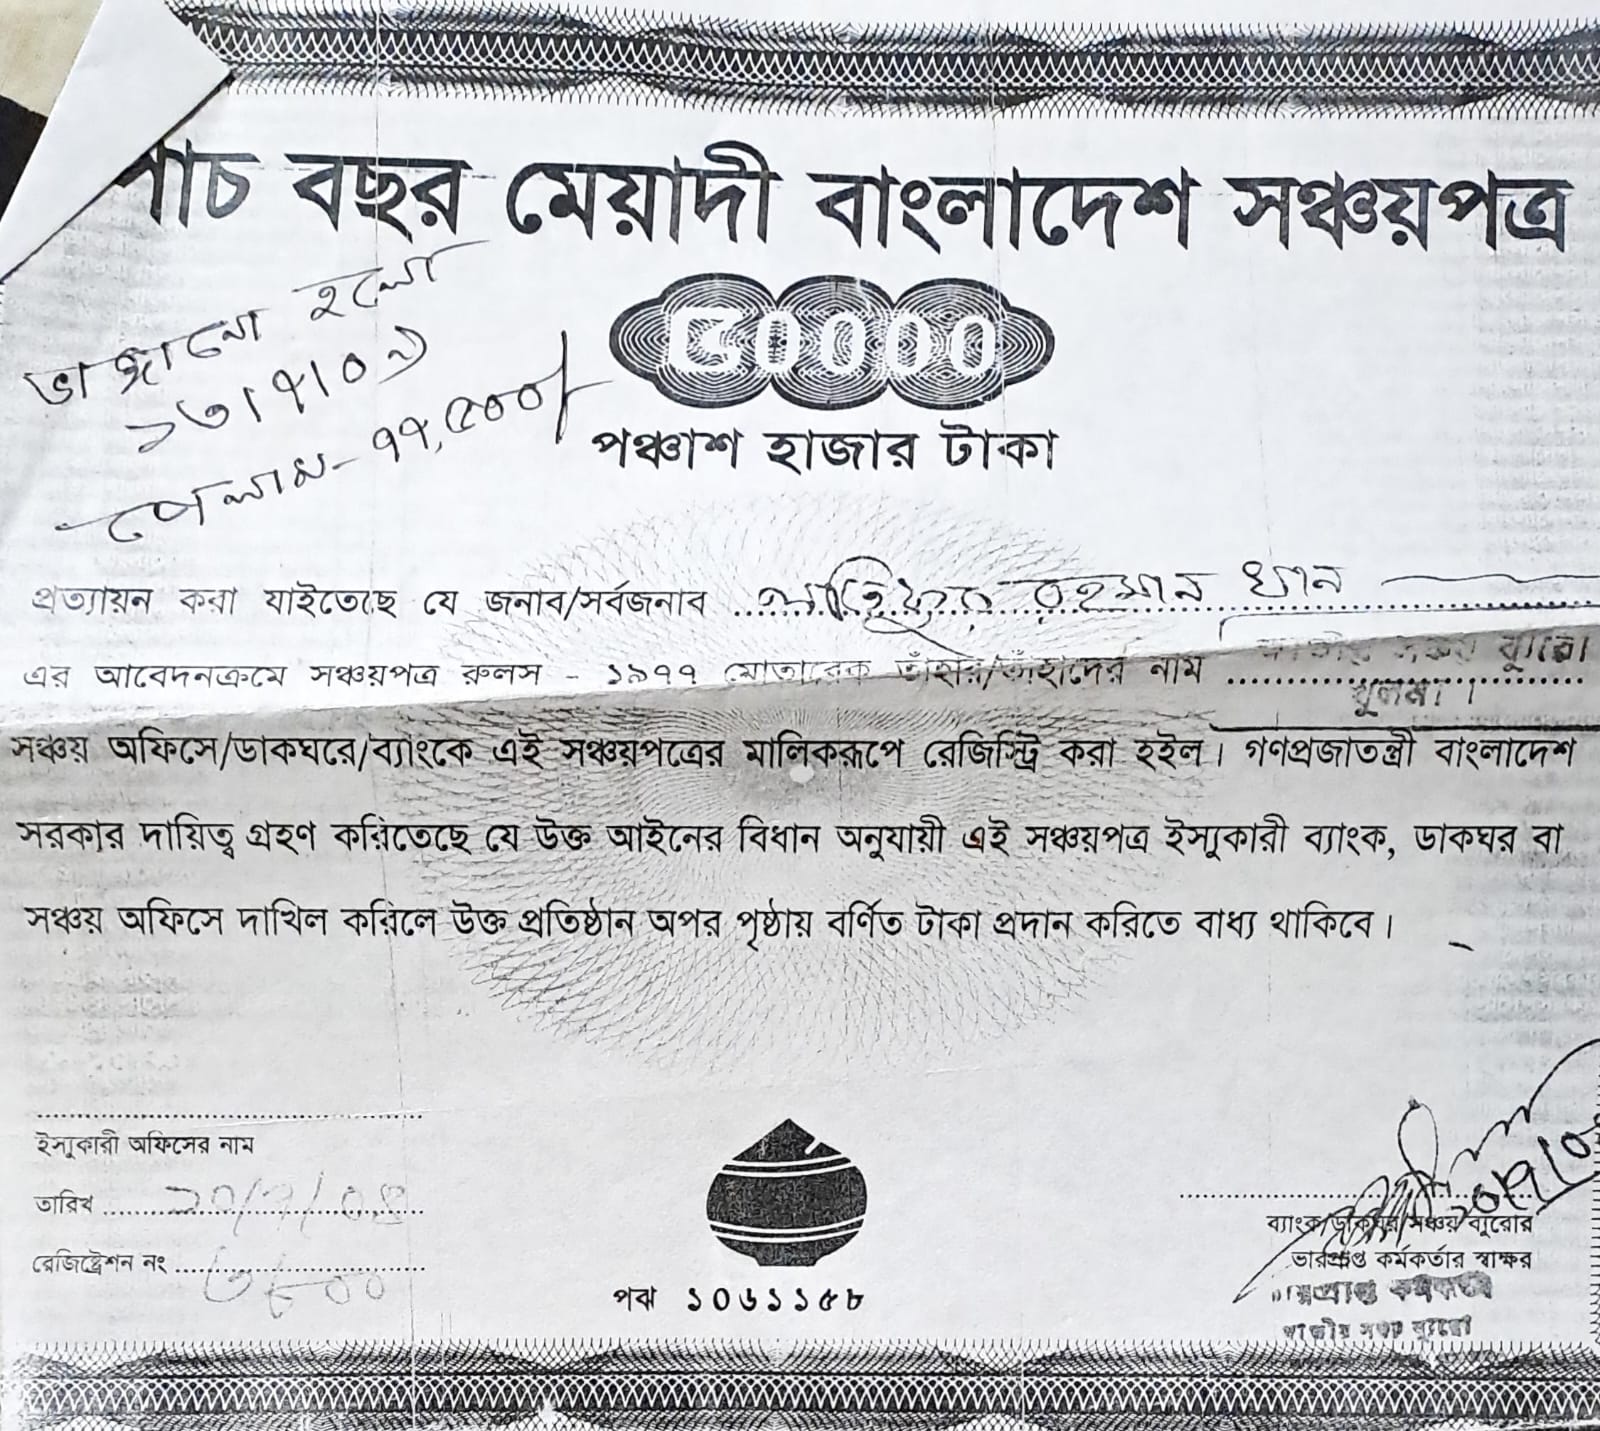 পাঁচ বছর মেয়াদী বাংলাদেশ সঞ্চয়পত্র
ভাঙ্গানো হলো
১৩/৭/০৯
পেলাম- ৭৭,৫০০/-
৫০০০০
পঞ্চাশ হাজার টাকা
প্রত্যায়ন করা যাইতেছে যে জনাব/সর্বজনাব রহমান খান
এর আবেদনক্রমে সঞ্চয়পত্র রুলস - ১৯৭৭ মোতাবেক তাঁহার/তাঁহাদের নাম জাতীয় সঞ্চয় ব্যুরো
খুলনা।
সঞ্চয় অফিসে/ডাকঘরে/ব্যাংকে এই সঞ্চয়পত্রের মালিকরূপে রেজিস্ট্রি করা হইল। গণপ্রজাতন্ত্রী বাংলাদেশ
সরকার দায়িত্ব গ্রহণ করিতেছে যে উক্ত আইনের বিধান অনুযায়ী এই সঞ্চয়পত্র ইস্যুকারী ব্যাংক, ডাকঘর বা
সঞ্চয় অফিসে দাখিল করিলে উক্ত প্রতিষ্ঠান অপর পৃষ্ঠায় বর্ণিত টাকা প্রদান করিতে বাধ্য থাকিবে।
ইস্যুকারী অফিসের নাম
তারিখ ২০/৭/০৪
রেজিষ্ট্রেশন নং
পঝ ১০৬১১৫৮
ব্যাংক/ডাকঘর/সঞ্চয় ব্যুরোর
ভারপ্রাপ্ত কর্মকর্তার স্বাক্ষর
ভারপ্রাপ্ত কর্মকর্তা
জাতীয় সঞ্চয় ব্যুরো